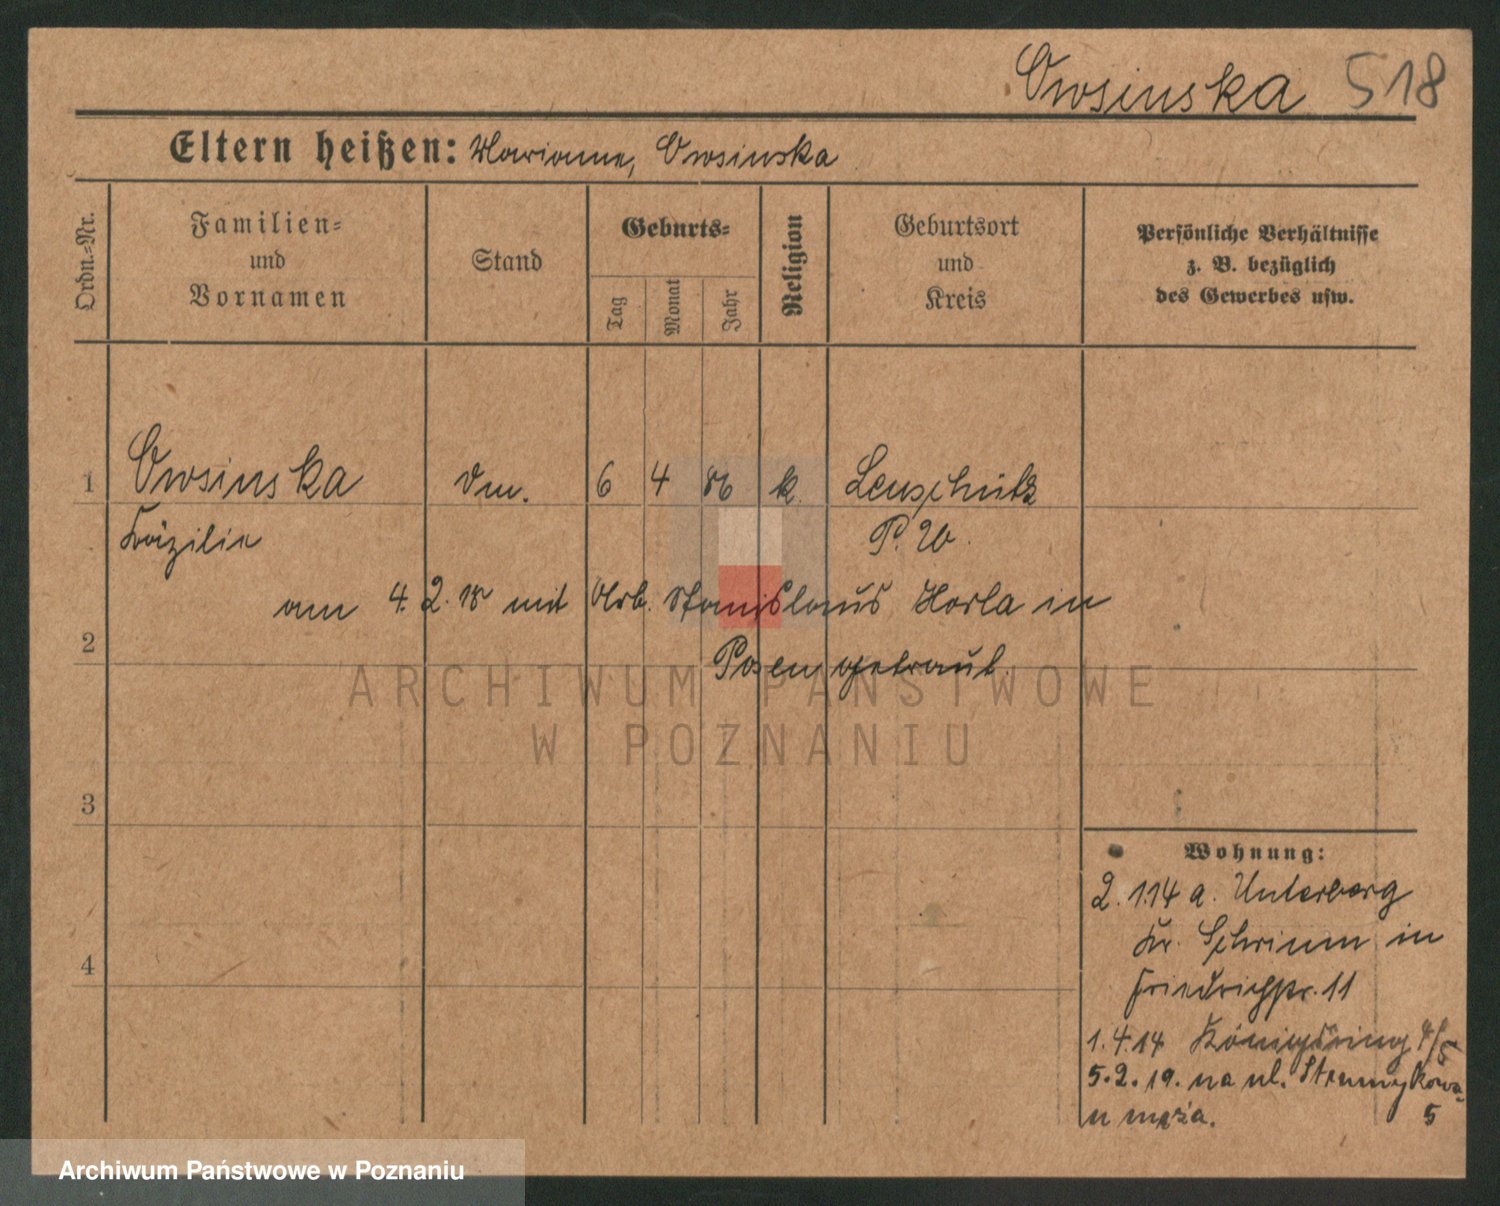 Owsinska 518
Eltern heißen: Marianne, Owsinska
Ordn.=Nr.
Familien=
und
Vornamen
Stand
Geburts=
Tag
Monat
Jahr
Religion
Geburtsort
und
Kreis
Persönliche Verhältnisse
z. B. bezüglich
des Gewerbes usw.
1 Owsinska 6 4 86 k. Lenschütz
Cäzilie
am 4. 2. 18 mit Arb. Stanislaus Horla in
2 Posen getraut.
ARCHIWUM PAŃSTWOWE
W POZNANIU
3
4
Wohnung:
2. 1.14 a. Unterberg
Kr. Schrimm in
Friedrichstr. 11
1. 4. 14 Königsring
5. 2. 19. na ul. Strumykowa
u męża. 5
Archiwum Państwowe w Poznaniu